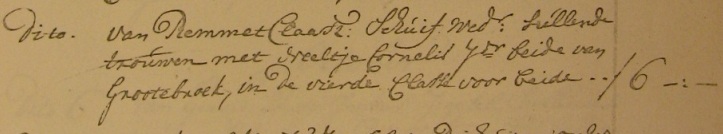 Dito. van Remmet Claasz: Schuit Wedr: sullende
trouwen met Neeltje Cornelis dr beide van
Grootebroek, in de vierde Classe voor beide - - / 6 -:-